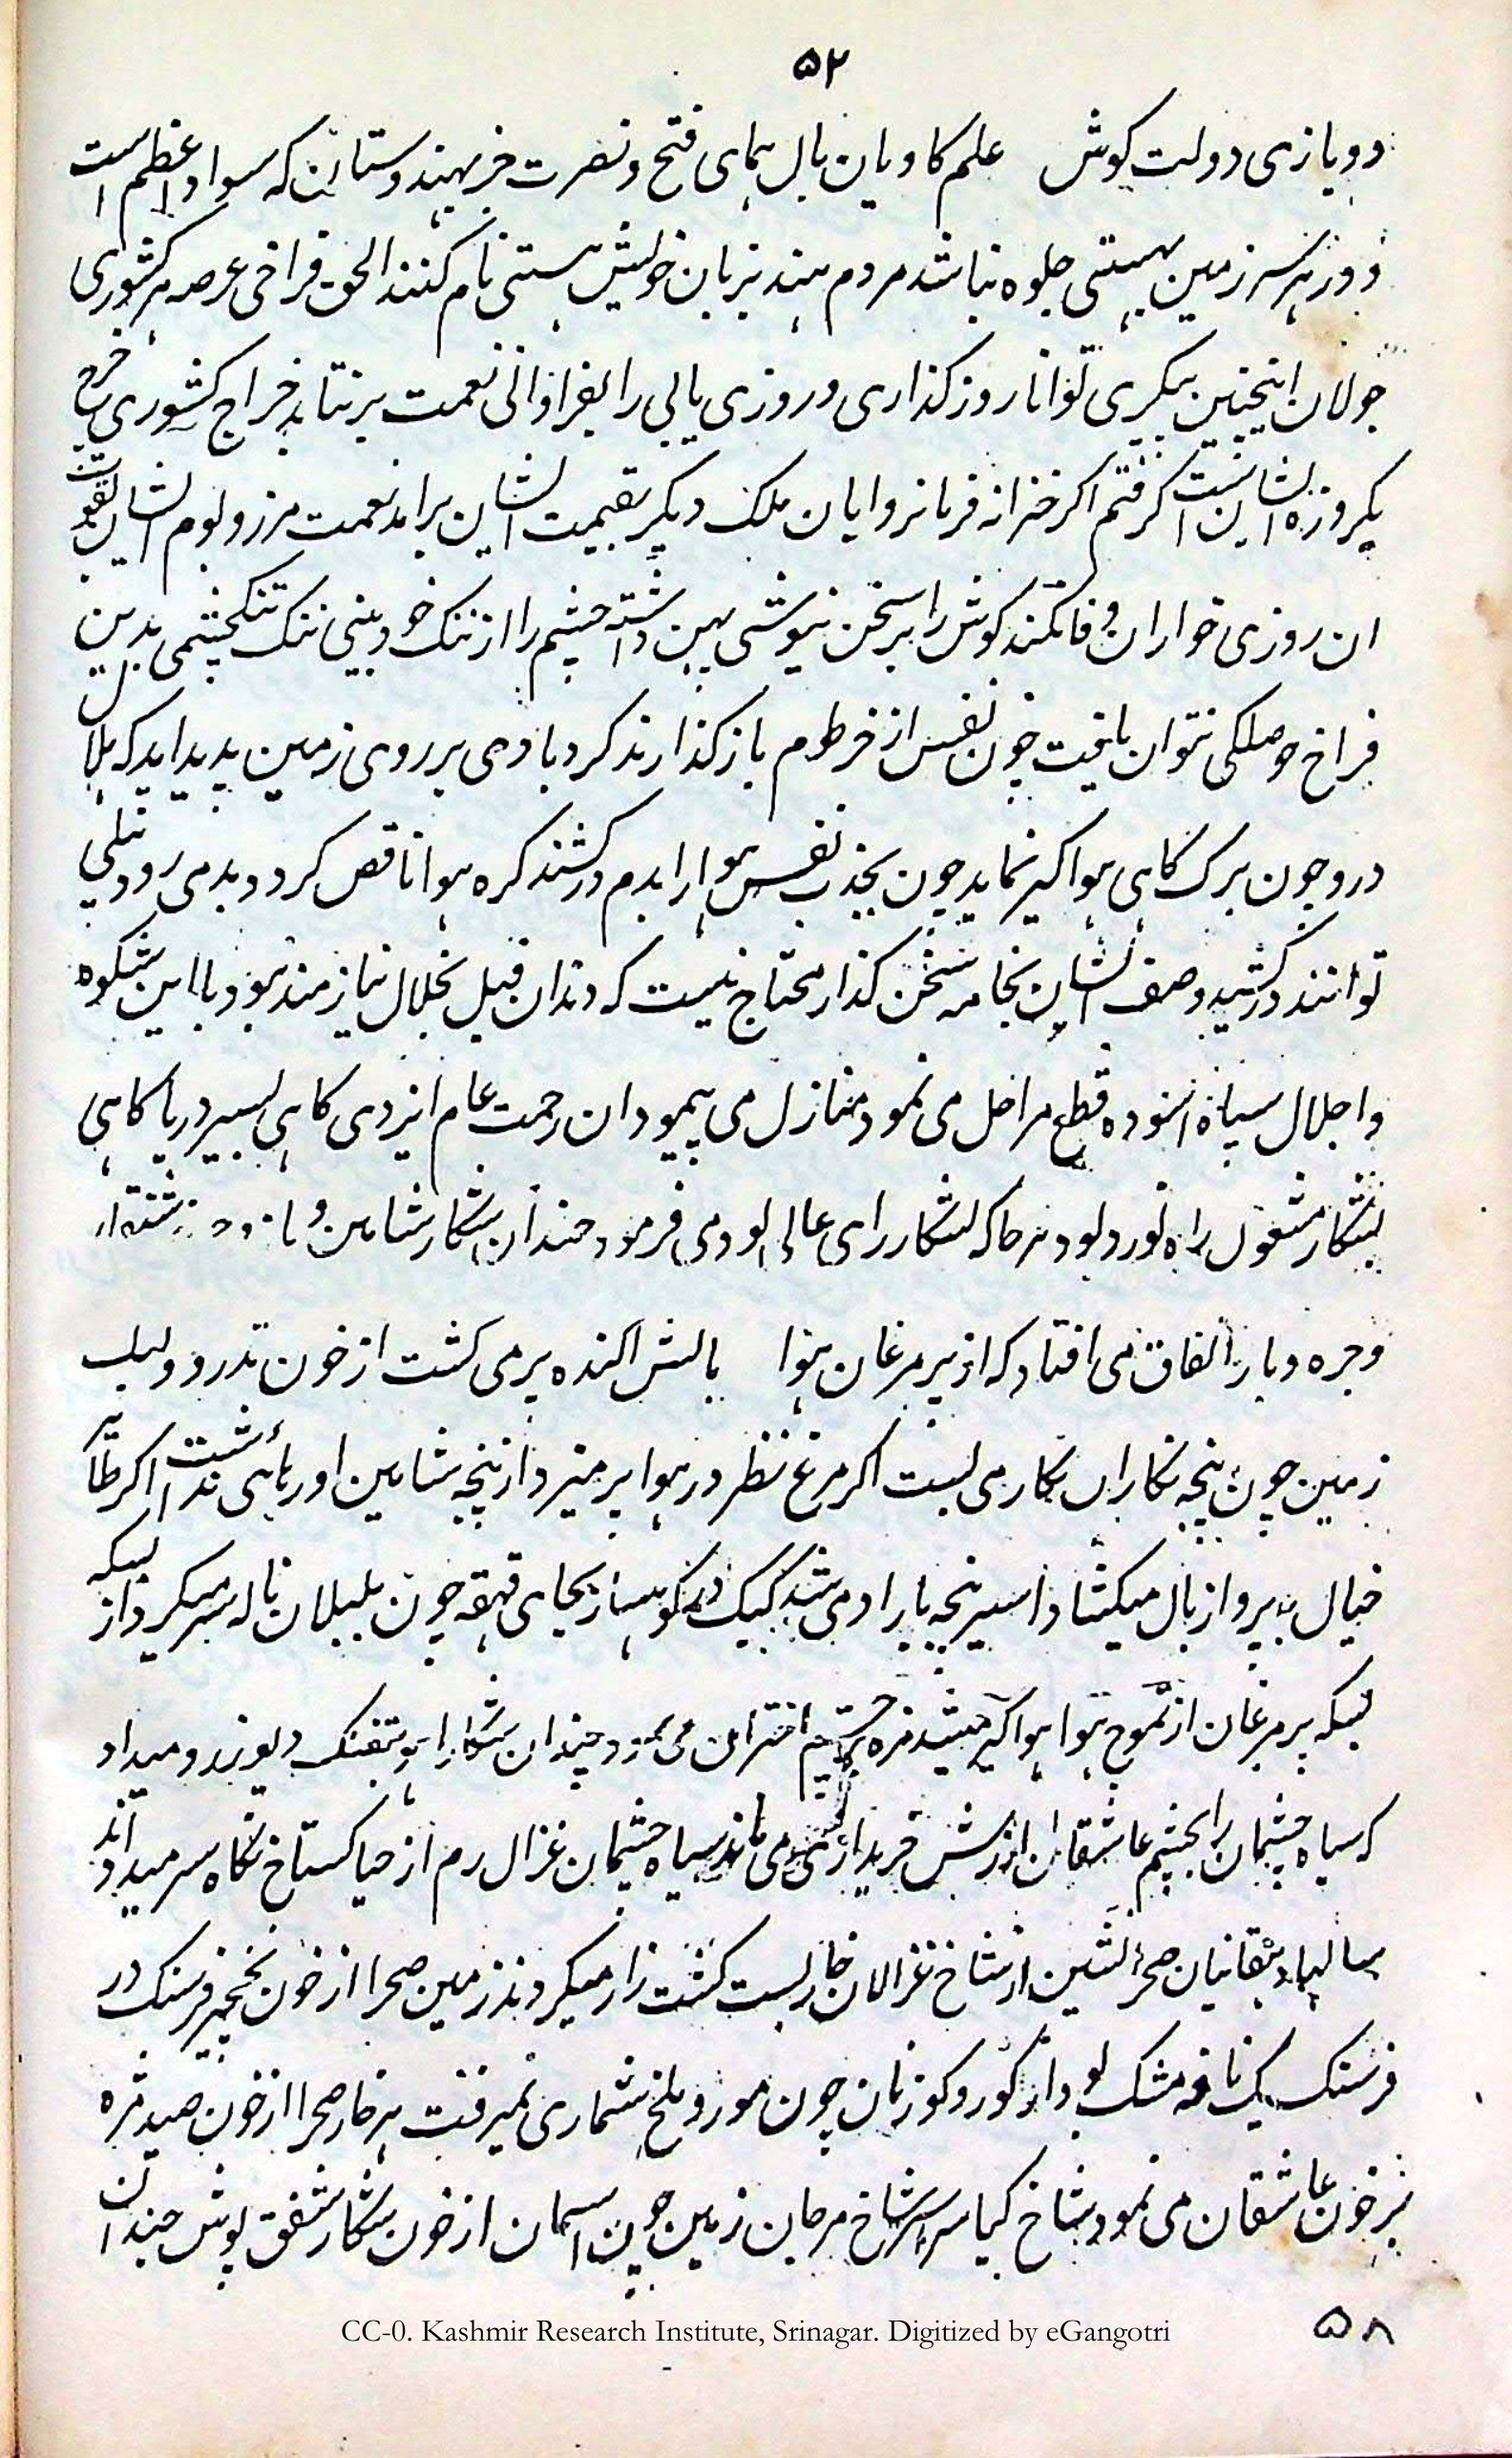 ۵۲
دو بازی دولت کوش علم کاویان بال ہمای فتح و نصرت جز بہندوستان کہ سواد اعظم است
و در ہر سرزمین بہستی جلوہ نباشد مردم ہند بزبان خویش ہستی نام کنند الحق فراخی عرصہ ہر کشوری
جولان اینچنین پیکری توانا روز کذاری و روزی یابی را بفراوانی نعمت برنتابد خراج کشوری خرج
یکروزہ ایشان است کرفتم اکر خزانہ فرمانروایان ملک دیکر بقیمت ایشان براید نعمت مرز و بوم ایشان بقوت
ان روزی خواران وفا نکند کوش را بر سخن نیوشی پہن داشتہ چشم را از ننک خود بینی تنک تنکچشمی بدین
فراخ حوصلکی نتوان یافت چون نفس از خرطوم باز کذارند کرد بادی بر روی زمین پدید اید کہ بلا
درو چون برک کاہی ہواکیر نماید چون بجذب نفس ہوا را بدم درکشند کرہ ہوا ناقص کردد بدمی رود نیلی
توانند درکشید وصف ایشان بخامہ سخن کذار محتاج نیست کہ دندان فیل بخلال نیازمند نبود با این شکوہ
و اجلال سپاہ اسودہ قطع مراحل می نمود منازل می پیمود ان رحمت عام ایزدی کاہی بسیر دریا کاہی
بشکار مشغول راہ نورد بود ہر جا کہ بشکار رای عالی بودی فرمود چندان شکار شاہین و
و جرہ و باز اتفاق می افتاد کہ از پر مرغان ہوا بالش اکندہ پر می کشت از خون تدرو و
زمین چون پنجہ نکاران نکار می بست اکر مرغ نظر در ہوا پر میزد از پنجہ شاہین او رہائی نداشت اکر طائر
خیال بہ پرواز بال میکشاد اسیر پنجہ باز او می شد کبک در کوہسار بجای قہقہہ چون بلبلان نالہ سر میکرد از بسکہ
بسکہ پر مرغان از تموج ہوا ہواکیر میشد مژہ چشم اختران می نمود چندان شکار اہو بتفنک و یوز رو میداد
کہ سیاہ چشمان را بچشم عاشقان ارزش خریداری نمی ماند سیاہ چشمان غزال رم از حیا کستاخ نکاہ سر میدادند
سالہا دہقانیان صحرا نشین از شاخ غزالان خاربست کشت زار میکردند زمین صحرا از خون نخجیر فرسنک در
فرسنک یک نافہ مشک بود از کور و کوزنان چون مور و ملخ شماری نمیرفت ہر خار صحرا از خون صید مژہ
پر خون عاشقان می نمود شاخ کیا سراسر شاخ مرجان زمین چون اسمان از خون شکار شفق پوش چندان
۵۸
CC-0. Kashmir Research Institute, Srinagar. Digitized by eGangotri